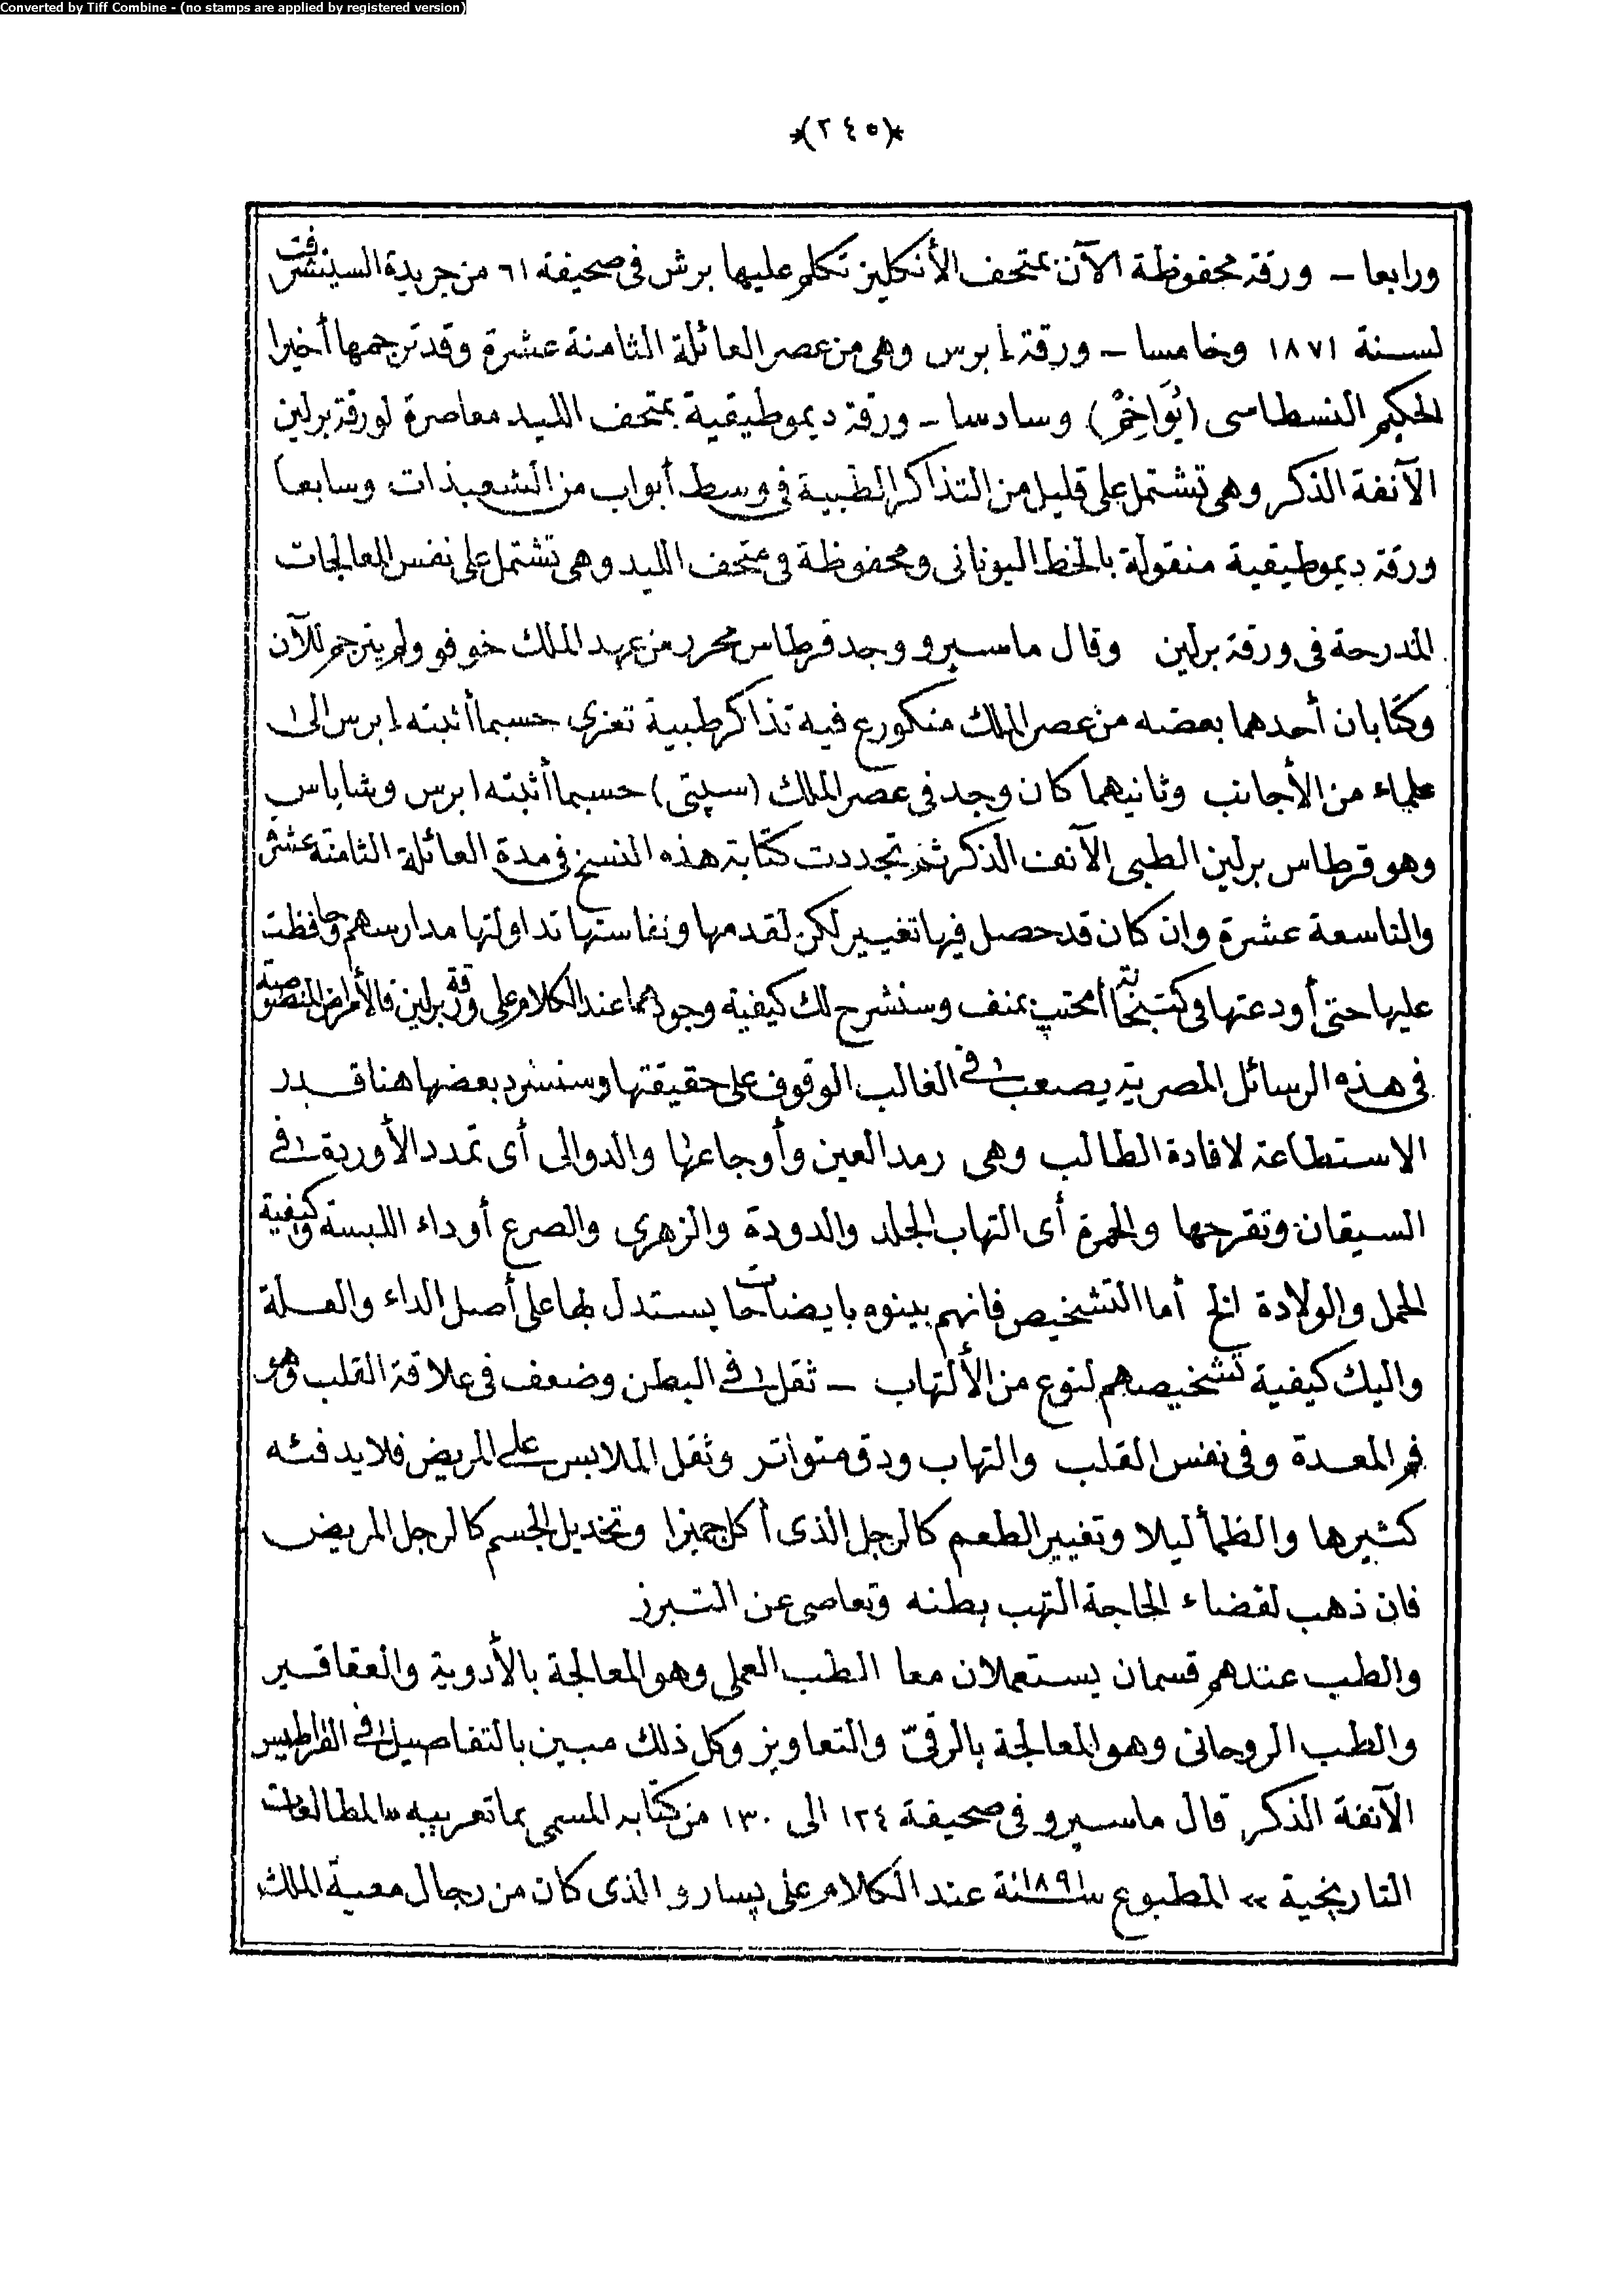 Converted by Tiff Combine - (no stamps are applied by registered version)
*(٢٤٥)*
ورابعا – ورقة محفوظة الآن بمتحف الأنكليز تكلم عليها برش فى صحيفة ٦١ من جريدة السينشرفت
لسنة ١٨٧١ وخامسا – ورقة إبرس وهى من عصر العائلة الثامنة عشرة وقد ترجمها أخيرا
الحكيم النسطاسى (يُوَاخِمْ) وسادسا – ورقة ديموطيقية بمتحف الليد معاصرة لورقة برلين
الآنفة الذكر وهى تشتمل على قليل من التذاكر الطبية فى وسط أبواب من الشعبذات وسابعا
ورقة ديموطيقية منقولة بالخط اليونانى ومحفوظة فى متحف الليد وهى تشتمل على نفس المعالجات
المندرجة فى ورقة برلين وقال ماسبرو وجد قرطاس محرر من عهد الملك خوفو ولم يترجم للآن
وكتابان أحدهما بعضه من عصر الملك منكورع فيه تذاكر طبية تعزى حسبما أثبته إبرس الى
علماء من الأجانب وثانيهما كان وجد فى عصر الملك (سپتى) حسبما أثبته ابرس وشاباس
وهو قرطاس برلين الطبى الآنف الذكر ثم تجددت كتابة هذه النسخ فى مدة العائلة الثامنة عشرة
والتاسعة عشرة وان كان قد حصل فيها تغيير لكن لقدمها ونفاستها تداولتها مدارسهم وحافظت
عليها حتى أودعتها فى كتبخانة أمحتپ بمنف وسنشرح لك كيفية وجودهما عند الكلام على ورقة برلين فالأمراض المنصوصة
فى هذه الرسائل المصرية يصعب فى الغالب الوقوف على حقيقتها وسنسرد بعضها هنا قدر
الاستطاعة لافادة الطالب وهى رمد العين وأوجاعها والدوالى أى تمدد الأوردة فى
السيقان وتقرحها والحمرة أى التهاب الجلد والدودة والزهرى والصرع أو داء اللبسة وكيفية
الحمل والولادة الخ أما التشخيص فانهم بينوه بايضاحات يستدل بها على أصل الداء والعلة
واليك كيفية تشخيصهم لنوع من الألتهاب – ثقل فى البطن وضعف فى علاقة القلب وهو
فم المعدة وفى نفس القلب والتهاب ودق متواتر وثقل الملابس على المريض فلا يدفئه
كثيرها والظمأ ليلا وتغيير الطعم كالرجل الذى أكل جميزا وتخديل الجسم كالرجل المريض
فان ذهب لقضاء الحاجة التهب بطنه وتعاصى عن التبرز
والطب عندهم قسمان يستعملان معا الطب العملى وهو المعالجة بالأدوية والعقاقير
والطب الروحانى وهو المعالجة بالرقىّ والتعاويز وكل ذلك مبين بالتفاصيل فى القراطيس
الآنفة الذكر قال ماسپرو فى صحيفة ١٢٤ الى ١٣٠ من كتابه المسمى بما تعريبه «المطالعات
التاريخية» المطبوع سنة ١٨٩١ عند الكلام على پسارو الذى كان من رجال معية الملك